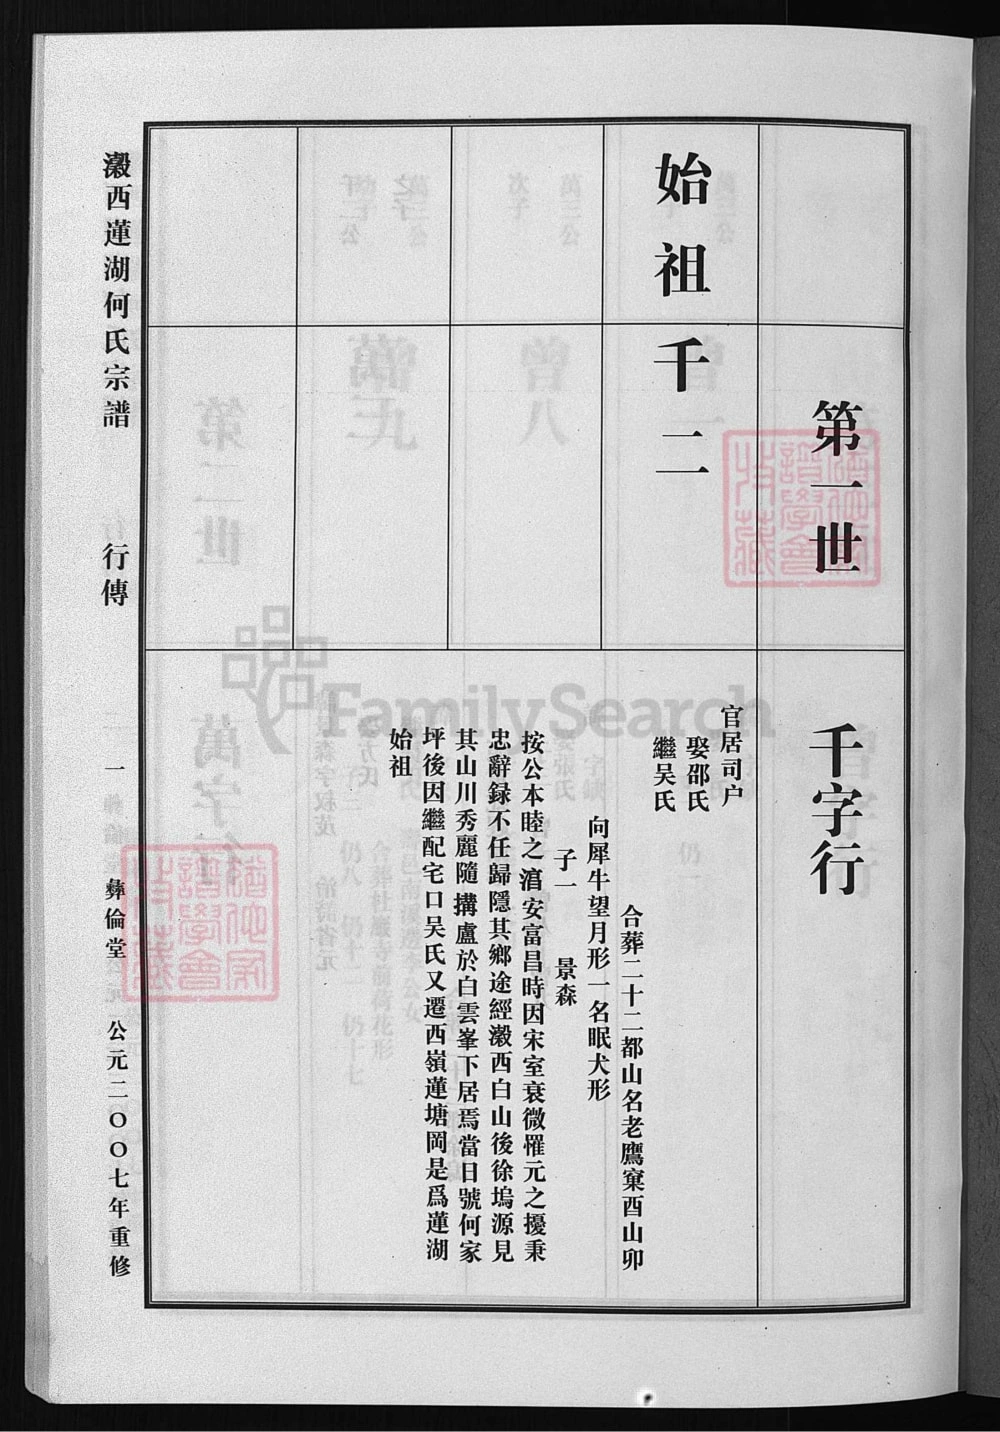 第一世
千字行
始祖
千二
官居司户
娶邵氏
繼吴氏
合葬二十二都山名老鷹窠酉山卯
向犀牛望月形一名眠犬形
子一 景森
按公本睦之涫安富昌時因宋室衰微罹元之擾秉
忠辭録不任歸隱其鄉途經瀫西白山後徐塢源見
其山川秀麗隨搆盧於白雲峯下居焉當日號何家
坪後因繼配宅口吴氏又遷西嶺蓮塘岡是爲蓮湖
始祖
瀫西蓮湖何氏宗譜 行傳 一 彝倫堂 公元二〇〇七年重修
FamilySearch